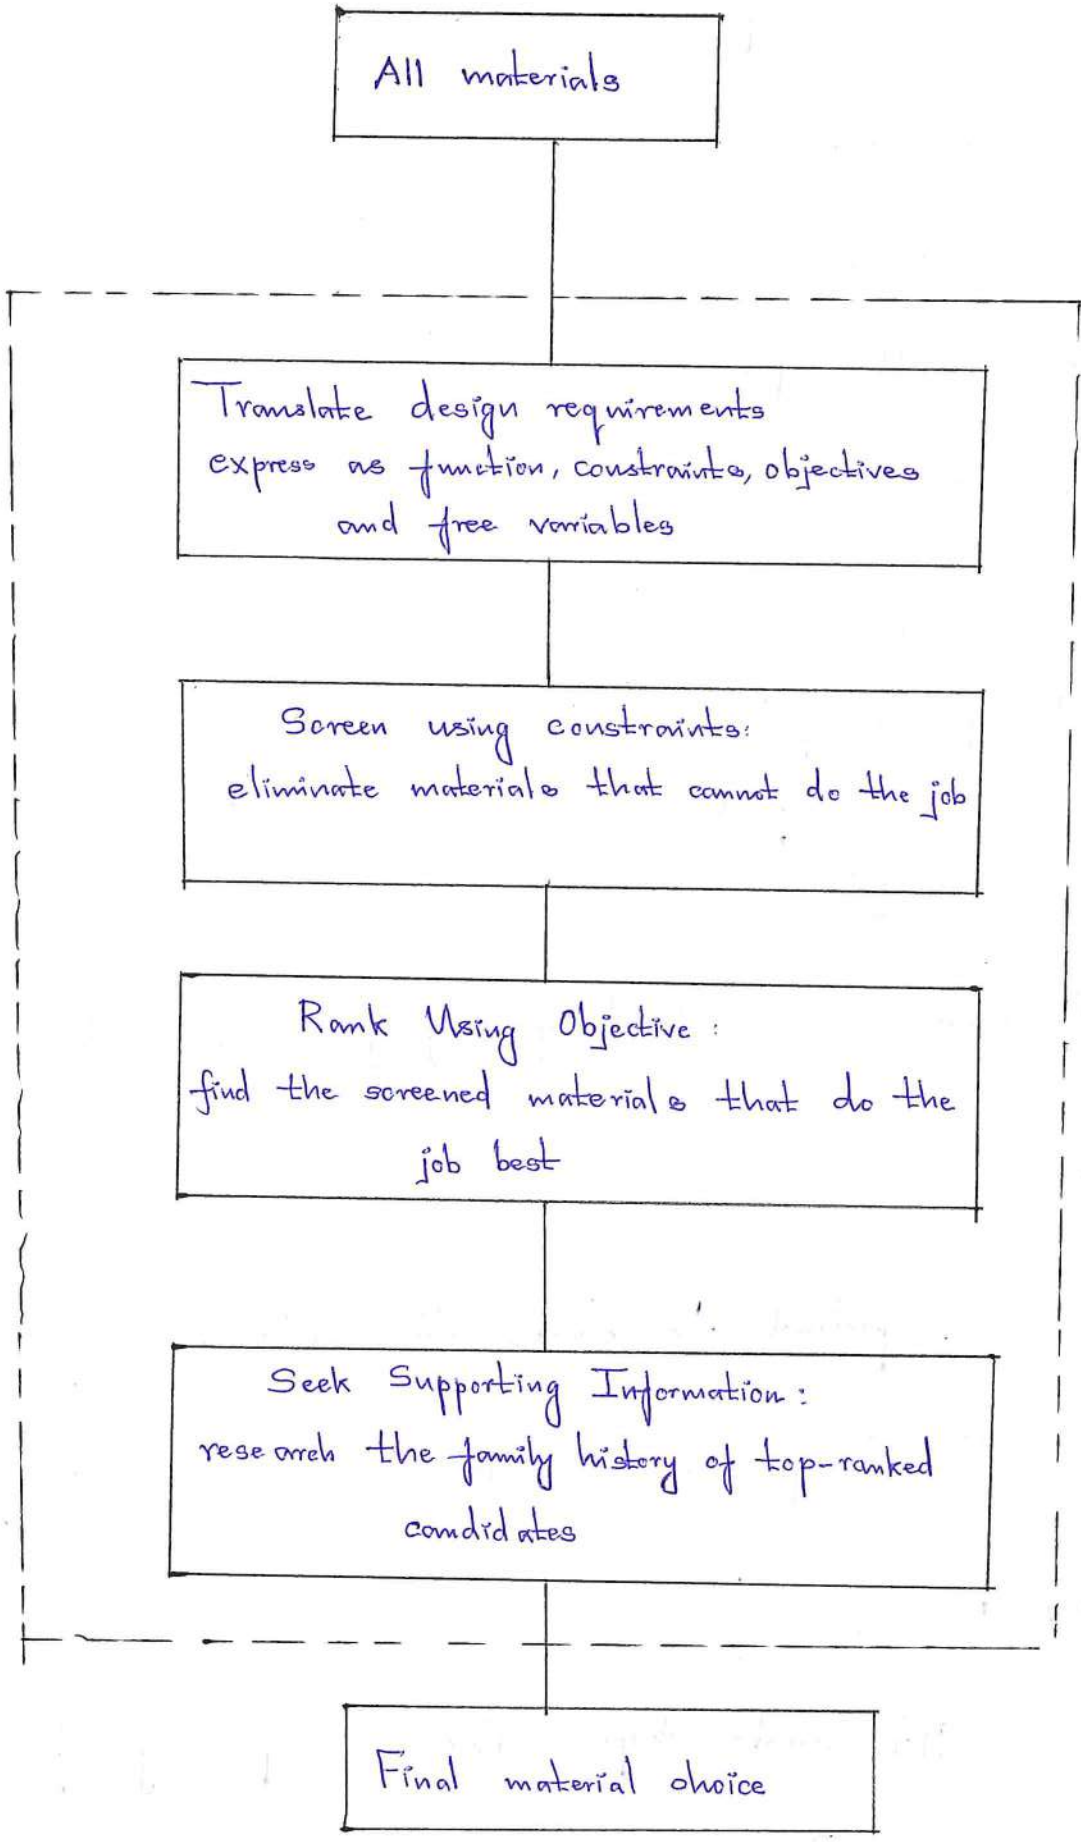 All materials
Translate design requirements
express as function, constraints, objectives
and free variables
Screen using constraints:
eliminate materials that cannot do the job
Rank Using Objective :
find the screened materials that do the
job best
Seek Supporting Information :
research the family history of top-ranked
candidates
Final material choice